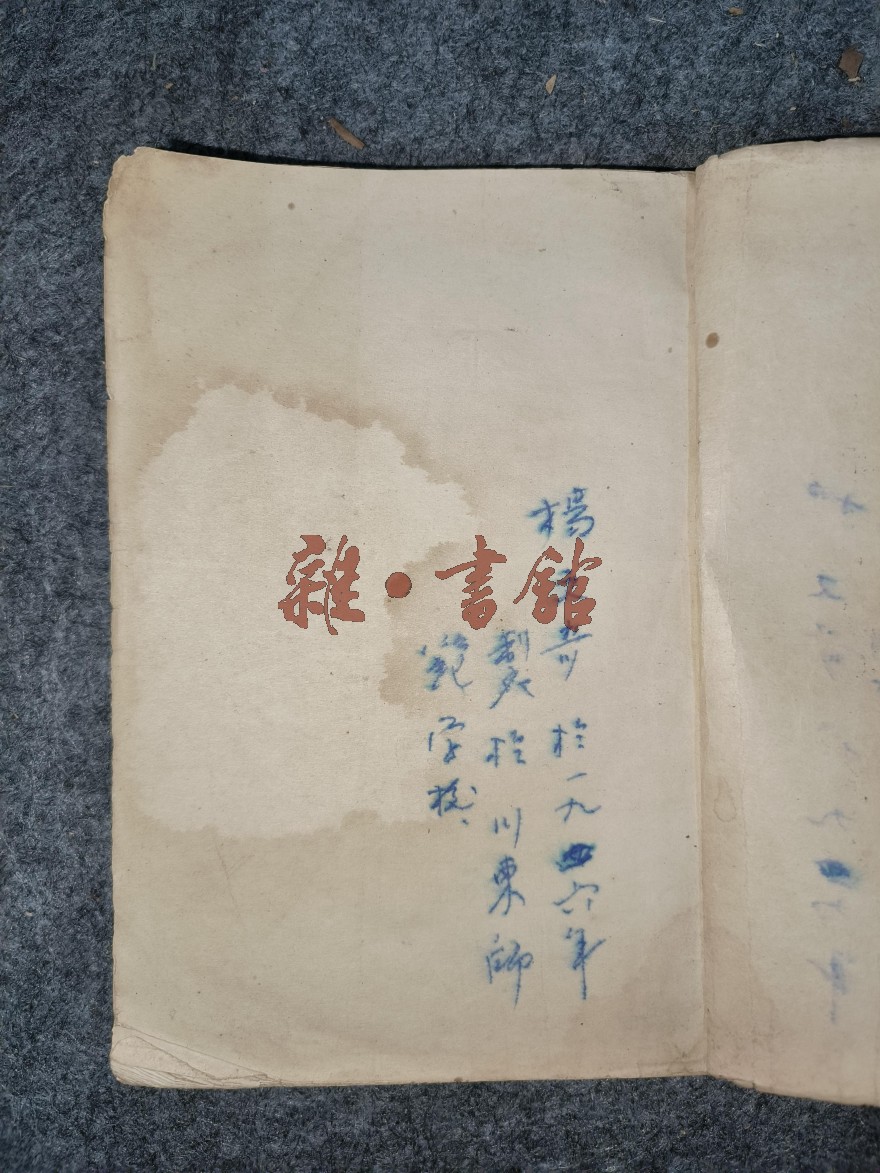 楊 於一九四六年
製於川東師
範学校、
雜·書館